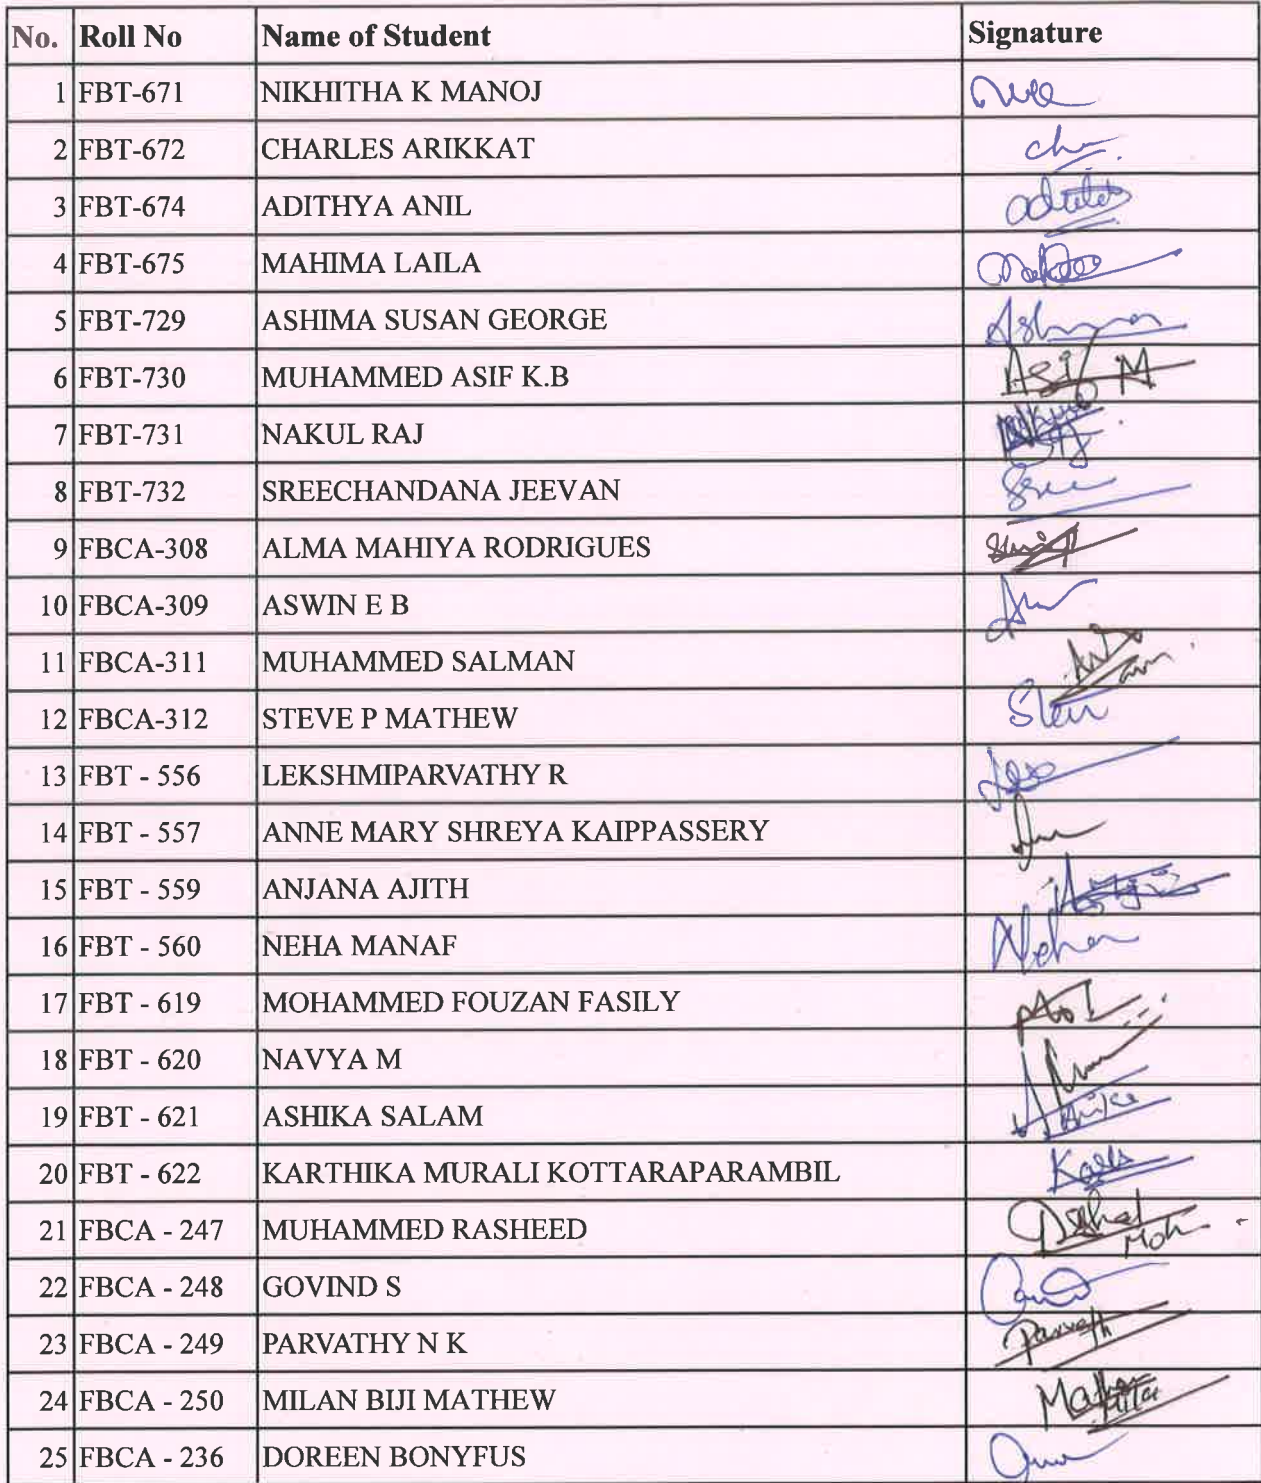 No. Roll No Name of Student Signature
1 FBT-671 NIKHITHA K MANOJ
2 FBT-672 CHARLES ARIKKAT
3 FBT-674 ADITHYA ANIL
4 FBT-675 MAHIMA LAILA
5 FBT-729 ASHIMA SUSAN GEORGE
6 FBT-730 MUHAMMED ASIF K.B Asif M
7 FBT-731 NAKUL RAJ
8 FBT-732 SREECHANDANA JEEVAN Sree
9 FBCA-308 ALMA MAHIYA RODRIGUES
10 FBCA-309 ASWIN E B
11 FBCA-311 MUHAMMED SALMAN
12 FBCA-312 STEVE P MATHEW
13 FBT - 556 LEKSHMIPARVATHY R
14 FBT - 557 ANNE MARY SHREYA KAIPPASSERY
15 FBT - 559 ANJANA AJITH
16 FBT - 560 NEHA MANAF Neha
17 FBT - 619 MOHAMMED FOUZAN FASILY
18 FBT - 620 NAVYA M
19 FBT - 621 ASHIKA SALAM
20 FBT - 622 KARTHIKA MURALI KOTTARAPARAMBIL
21 FBCA - 247 MUHAMMED RASHEED
22 FBCA - 248 GOVIND S
23 FBCA - 249 PARVATHY N K
24 FBCA - 250 MILAN BIJI MATHEW
25 FBCA - 236 DOREEN BONYFUS